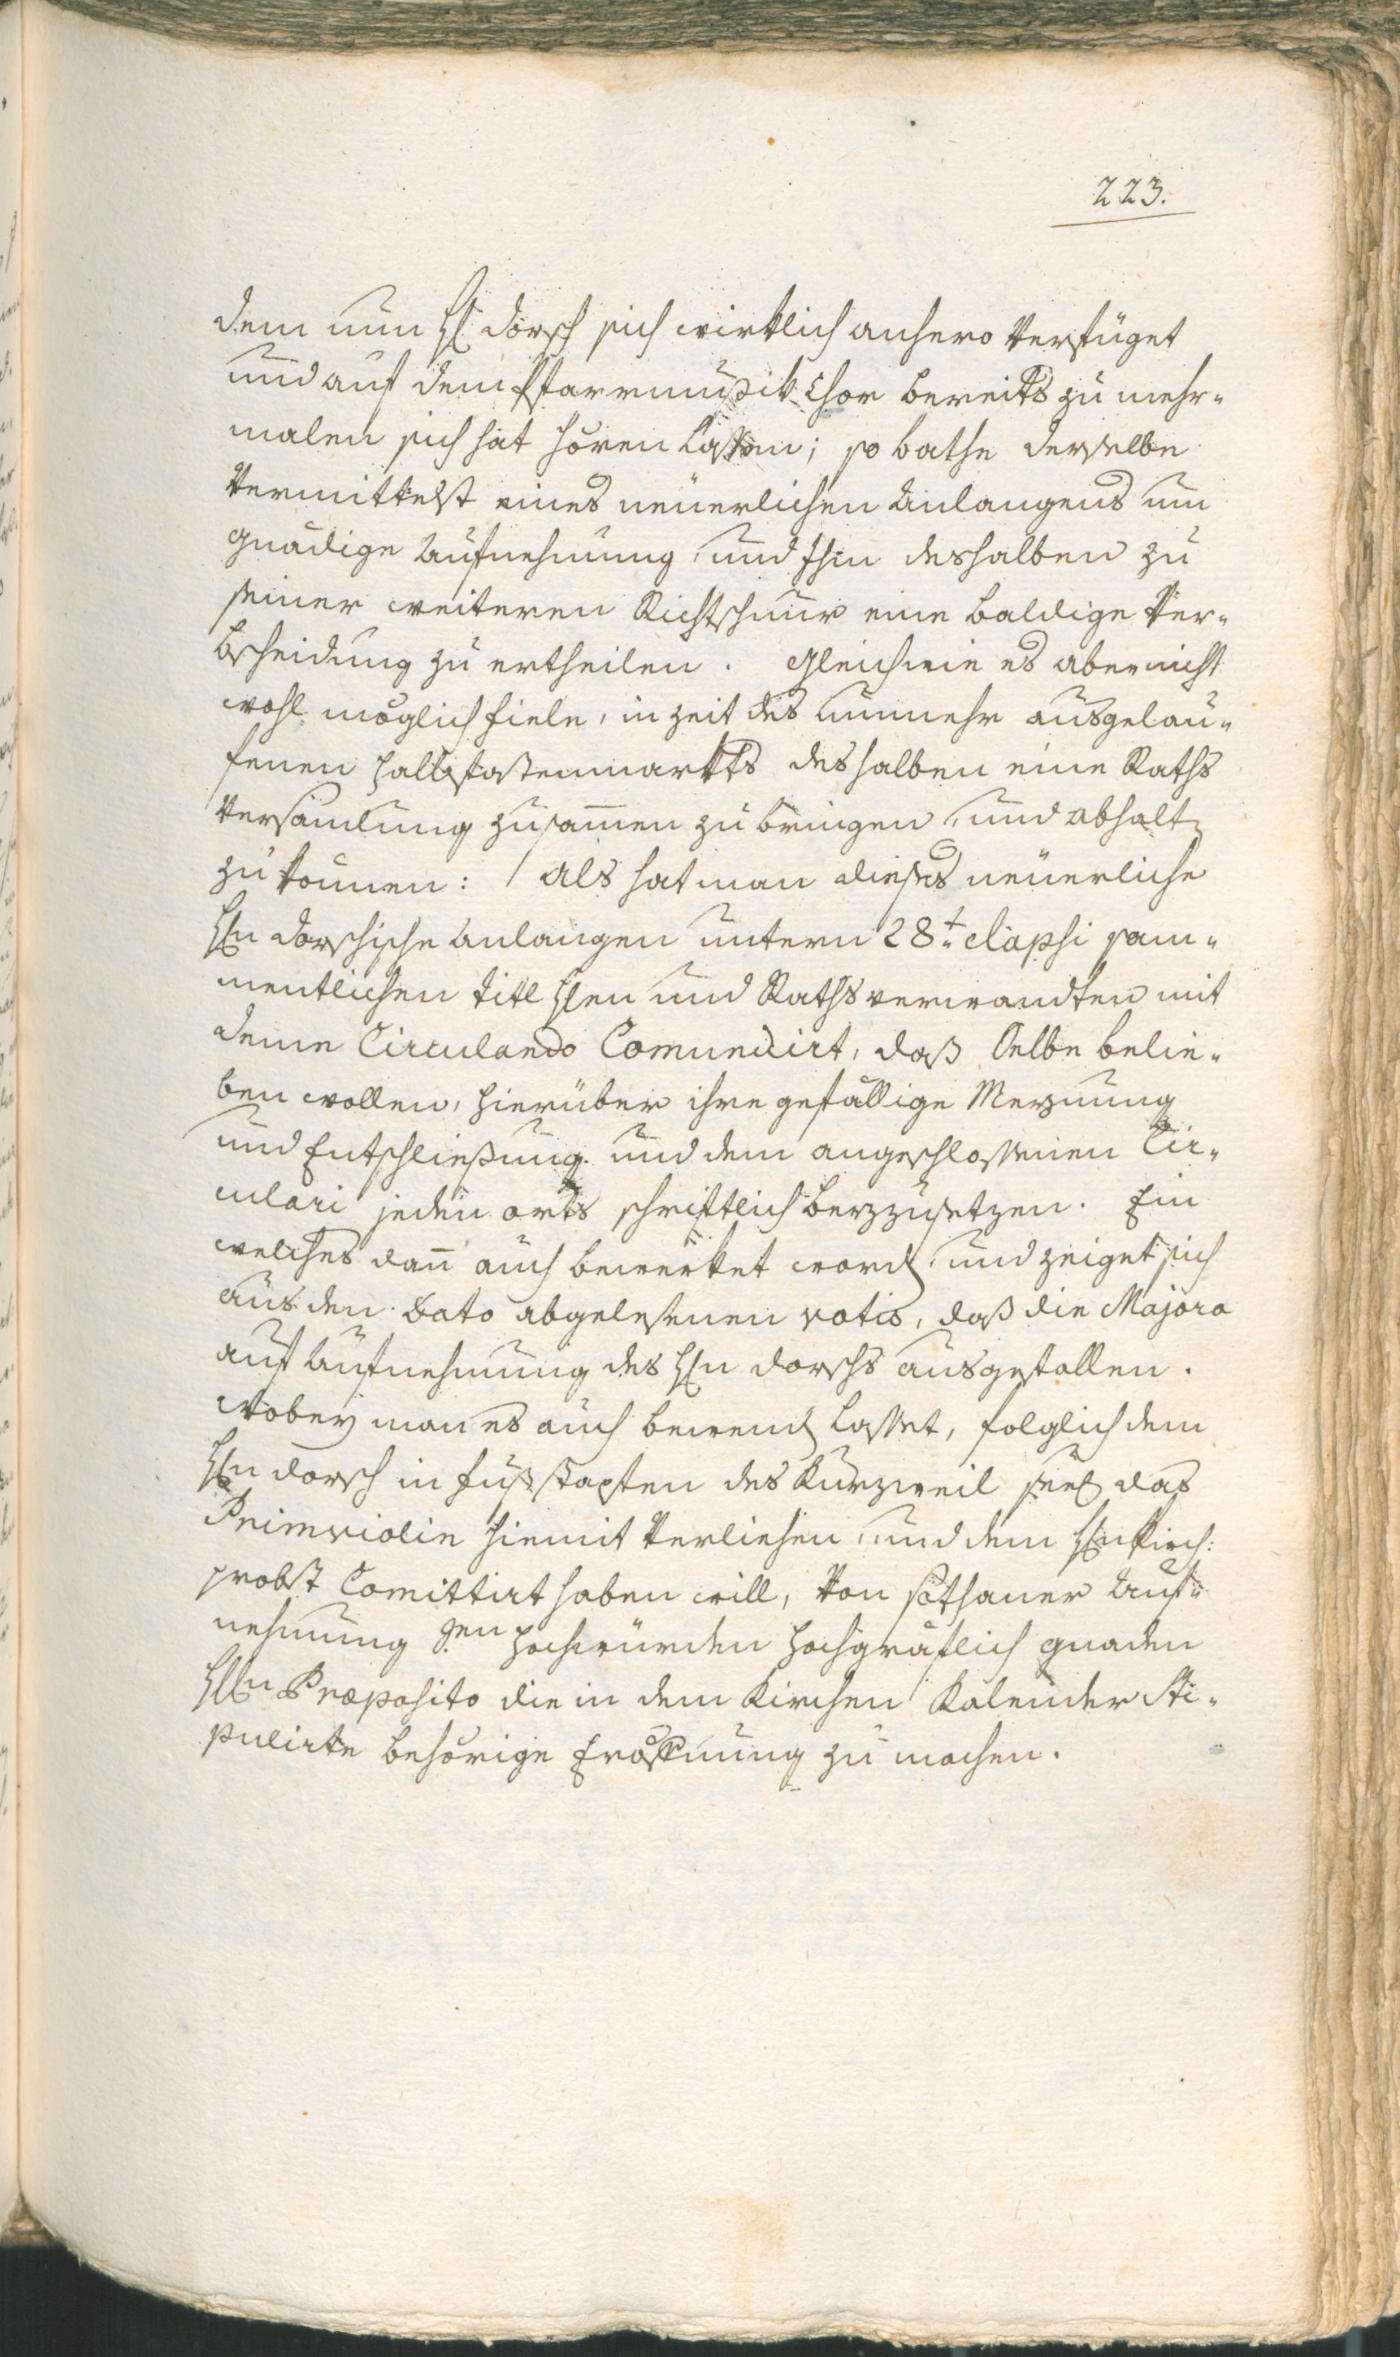 223.
dem nun H: Dorsch sich wirklich anhero verfüget
und auf dem Pfarrmusik Chor bereits zu mehr-
malen sich hat hören lassen; so bathe derselbe
vermittelst eines neuerlichen Anlangens um
gnädige Aufnehmung, und Ihm deshalben zu
seiner weiteren Richtschnur eine baldige Ver-
bscheidung zu ertheilen. Gleichwie es aber nicht
wohl möglich fiele, in Zeit des nunmehr ausgelau-
fenen Halbfastenmarkts deshalben eine Raths
Versam̄lung zusam̄en zu bringen, und abhalt
zu können: / Als hat man dieses neuerliche
Hn Dorschische Anlangen untern 28t: elapsi sam-
mentlichen Titl Hen und Rathsverwandten mit
deme Circulando Com̄unicirt, daß Selbe belie-
ben wollen, hierüber ihre gefällige Meynung
und Entschließung und dem angeschlossenen Cir-
culari jeden orts schriftlich beyzusetzen. Ein
welches dan̄ auch bewerket word, und zeiget sich
aus den Dato abgelesenen votis, daß die Majora
auf Aufnehmung des Hn Dorschs ausgefallen.
Wobey man es auch bewend lasset, folglich dem
Hn Dorsch in Fußstapfen des Kurzweil seel das
Primviolin hiemit verliehen, und dem Hn Kirch:
probst Com̄ittirt haben will, von sothaner Auf-
nehmung Sen Hochwürden Hochgräflich Gnaden
HHn Præposito die in dem Kirchen Kalender Sti-
pulirte behörige Eröffnung zu machen.